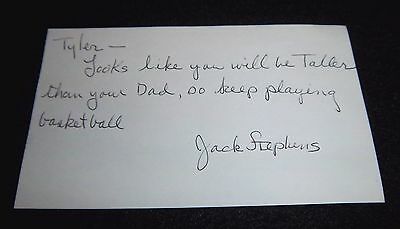 Tyler —
Looks like you will be Taller
than your Dad, so keep playing
basketball
Jack Stephens